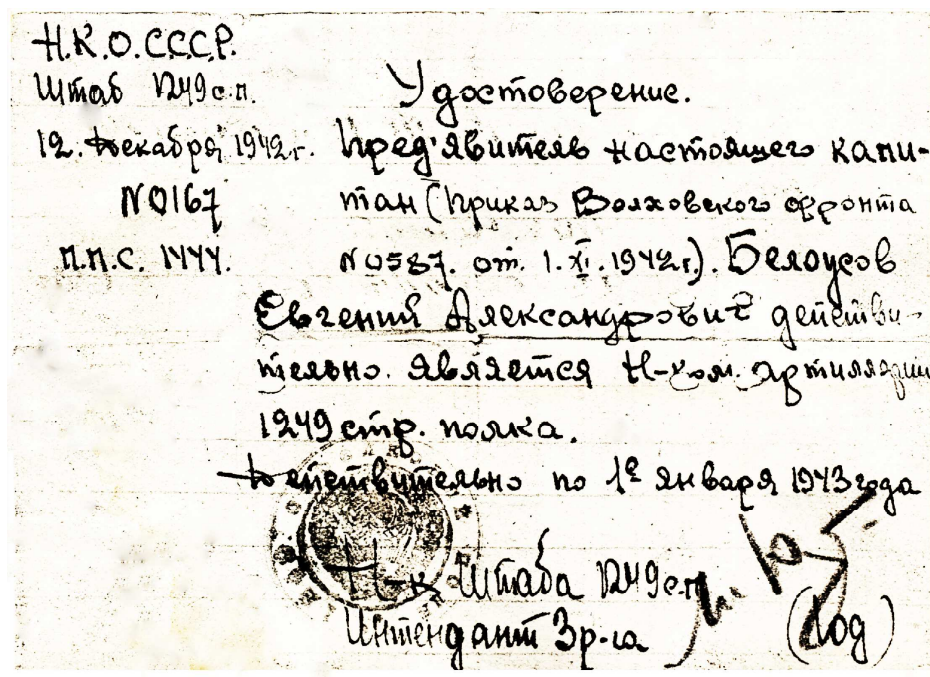 Н.К.О.С.С.С.Р.
Штаб 1249 с.п.
12. Декабря 1942 г.
№0167
П.П.С. 1444.
Удостоверение.
Пред'явитель настоящего капи-
тан (Приказ Волховского фронта
№0587. от. 1.XI.1942 г.). Белоусов
Евгений Александрович действи-
тельно. является Н-ком. артиллерии
1249 стр. полка.
Действительно по 1е января 1943 года
Н-к Штаба 1249 с.п.
Интендант 3 р-га
(Юд)